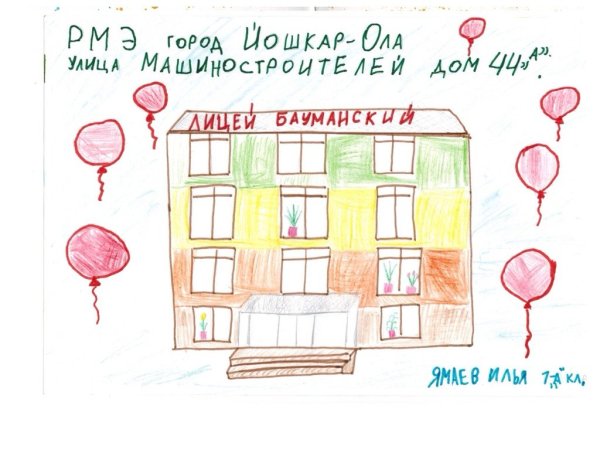 РМЭ город Йошкар-Ола
улица Машиностроителей дом 44 „А".
ЛИЦЕЙ БАУМАНСКИЙ
ЯМАЕВ ИЛЬЯ 1 „А" кл.